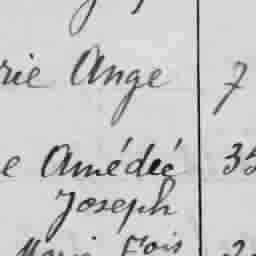 rie Ange 7
e Amédée 35
Joseph
Marie Fois